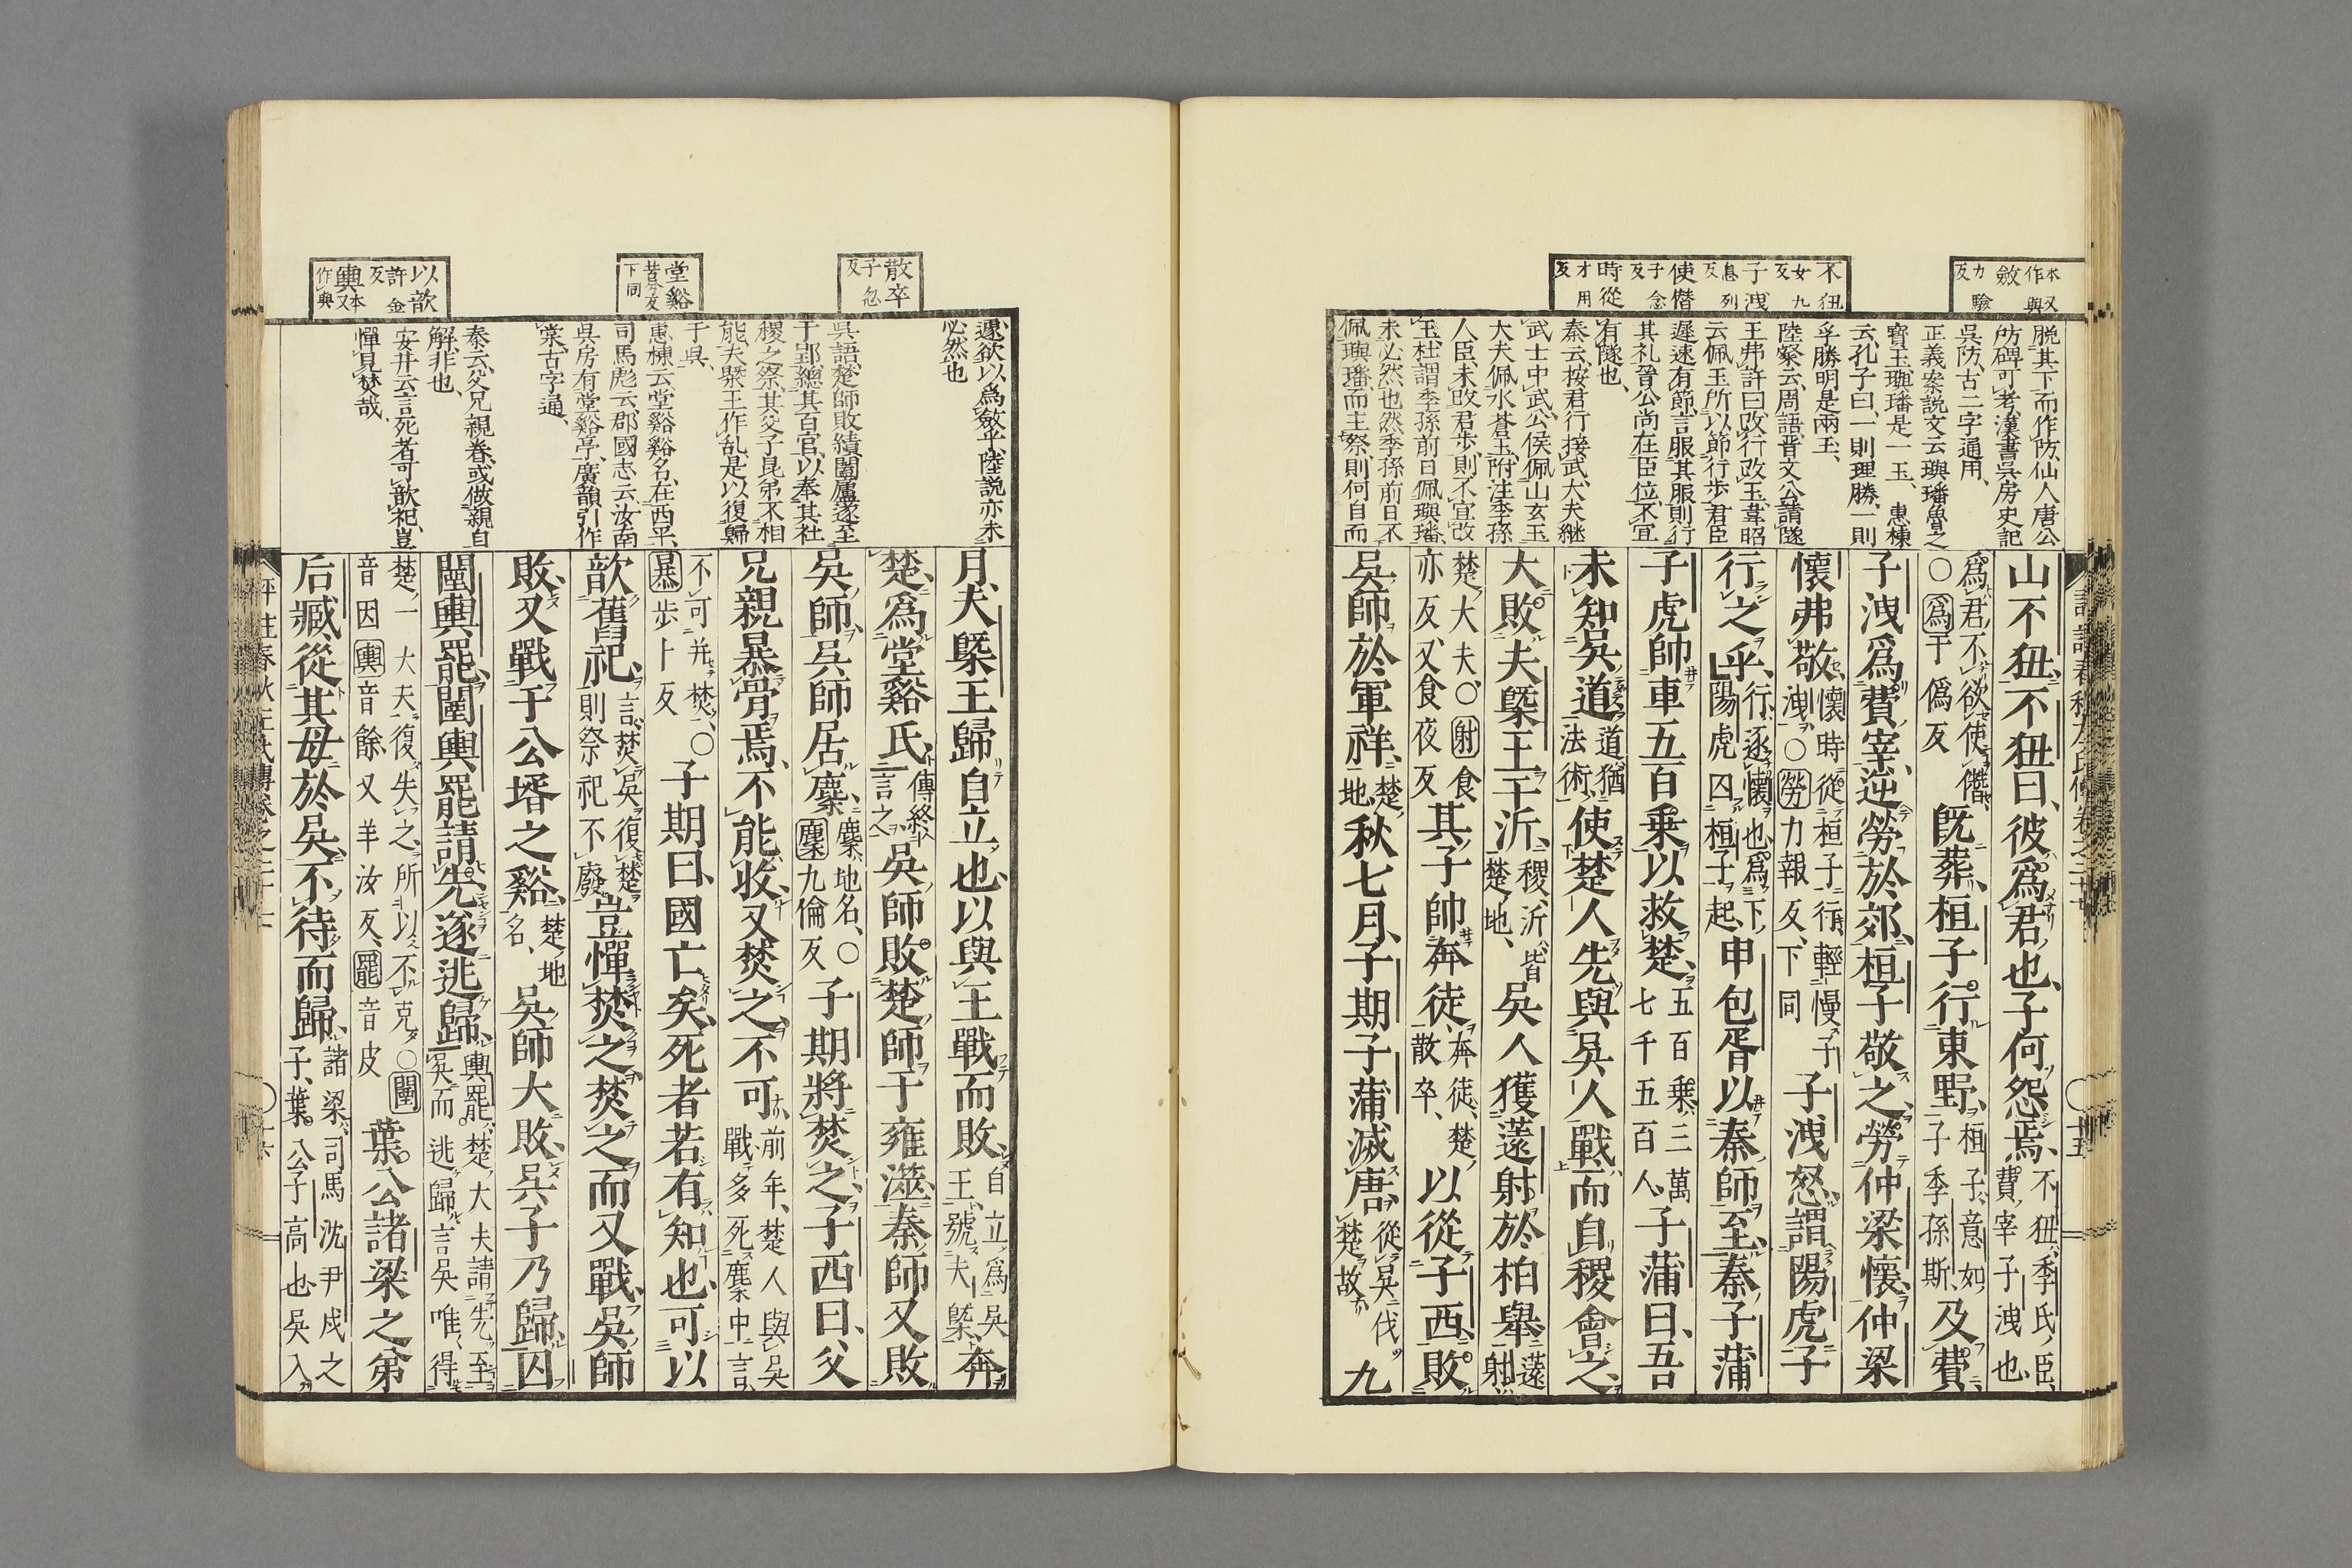 本又作與
斂力驗反
不狃女九反
子洩息列反
使僭子念反
時從才用反
脱其下而作防仙人唐公
防碑可考漢書吳房史記
吳防古二字通用
正義案説文云璵璠魯之
寶玉璵璠是一玉惠棟
云孔子曰一則理勝一則
孚勝明是兩玉
陸粲云周語晋文公請隧
王弗許曰改行改玉韋昭
云佩玉所以節行歩君臣
遲速有節言服其服則行
其礼晉公尚在臣位不宜
有隧也
秦云按君行接武大夫継
武士中武公侯佩山玄玉
大夫佩水蒼玉附注季孫
人臣未改君歩則不宜改
玉杜謂季孫前日佩璵璠
未必然也然季孫前日不
佩璵璠而主祭則何自而
山不狃不狃曰彼爲君也子何怨焉不狃季氏臣費宰子洩也
爲君不欲使僭○爲于僞反既葬桓子行東野桓子意如子季孫斯及費
子洩爲費宰逆勞於郊桓子敬之勞仲梁懷仲梁
懷弗敬懷時從桓子行輕慢子洩○勞力報反下同子洩怒謂陽虎子
行之乎行逐懷也爲下陽虎囚桓子起申包胥以秦師至秦子蒲
子虎帥車五百乗以救楚五百乗三萬七千五百人子蒲曰吾
未知吳道道猶法術使楚人先與吳人戰而自稷會之
大敗夫槩王于沂稷沂皆楚地吳人獲薳射於柏舉薳射
楚大夫○射食亦反又食夜反其子帥奔徒奔徒楚散卒以從子西敗
吳師於軍祥楚地秋七月子期子蒲滅唐從吳伐楚故九
散卒子忽反
堂谿昔兮反下同
以歆許金反
輿又本作與
還欲以爲斂乎陸説亦未
必然也
吳語楚師敗績闔廬遂至
于郢總其百官以奉其社
稷之祭其父子昆弟不相
能夫槩王作乱是以復歸
于吳
惠棟云堂谿谿名在西平
司馬彪云郡國志云汝南
吳房有堂谿亭廣韻引作
棠古字通
秦云父兄親眷或做親自
解非也
安井云言死者可歆祀豈
憚見焚哉
月夫槩王歸自立也以與王戰而敗自立爲吳王號夫槩奔
楚爲堂谿氏傳終言之吳師敗楚師于雍澨秦師又敗
吳師吳師居麇麇地名○麇九倫反子期將焚之子西曰父
兄親暴骨焉不能收又焚之不可前年楚人與吳戰多死麇中言
不可并焚○暴歩卜反子期曰國亡矣死者若有知也可以
歆舊祀言焚吳復楚則祭祀不廢豈憚焚之焚之而又戰吳師
敗又戰于公壻之谿楚地名吳師大敗吳子乃歸囚
闉輿罷闉輿罷請先遂逃歸輿罷楚大夫請先至吳而逃歸言吳唯得
楚一大夫復失之所以不克○闉音因輿音餘又羊汝反罷音皮葉公諸梁之弟
后臧從其母於吳不待而歸諸梁司馬沈尹戌之子葉公子高也吳入